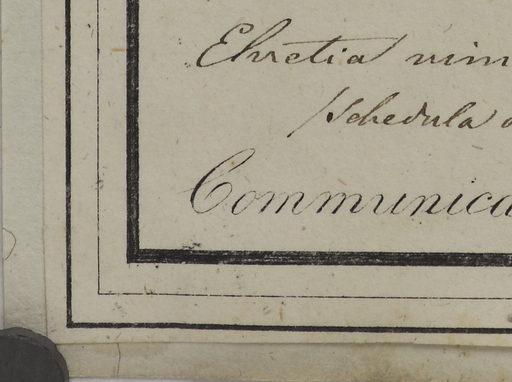 Ehretia vim
schedula
Communica